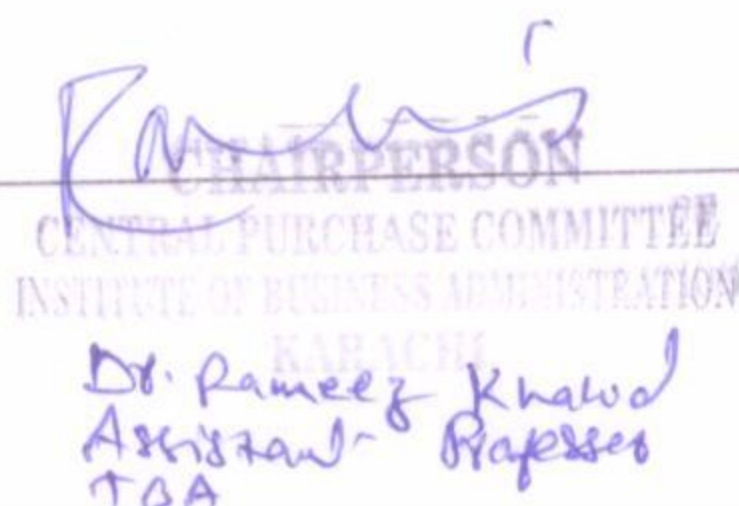 CHAIRPERSON
CENTRAL PURCHASE COMMITTEE
INSTITUTE OF BUSINESS ADMINISTRATION
KARACHI
Dr. Rameez Khalid
Assistant Professor